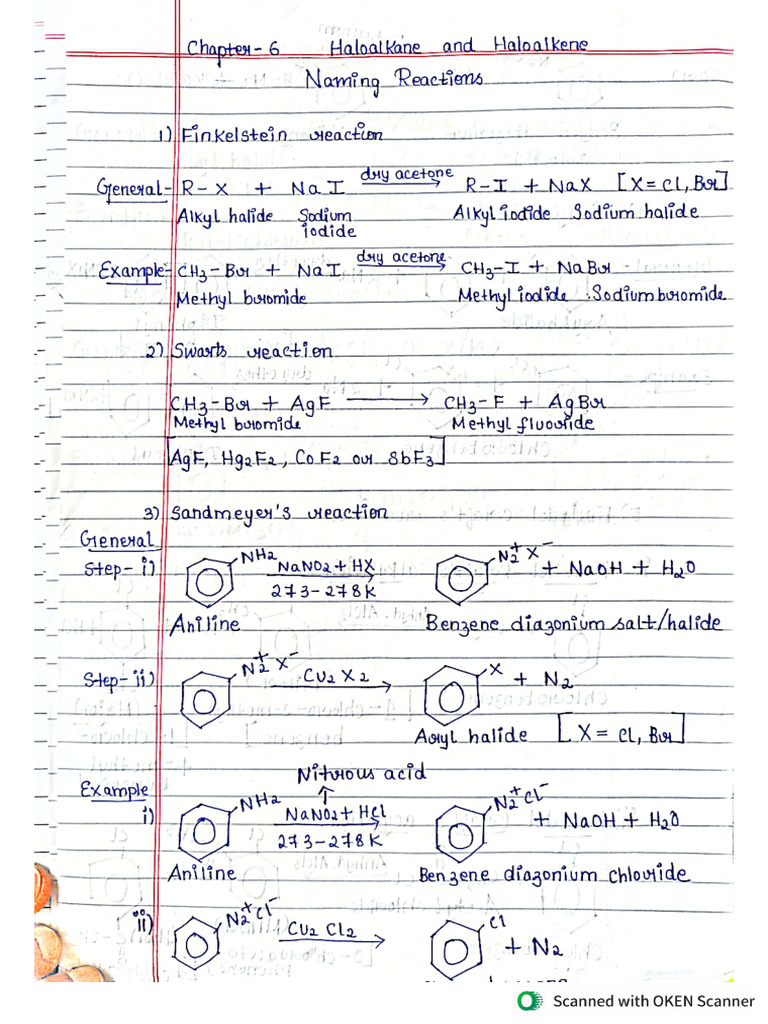 Chapter-6 Haloalkane and Haloalkene
Naming Reactions
1) Finkelstein reaction
General- R-X + NaI dry acetone → R-I + NaX [X=Cl, Br]
Alkyl halide Sodium iodide Alkyl iodide Sodium halide
Example- CH3-Br + NaI dry acetone → CH3-I + NaBr
Methyl bromide Methyl iodide Sodium bromide
2) Swarts reaction
CH3-Br + AgF → CH3-F + AgBr
Methyl bromide Methyl fluoride
[AgF, Hg2F2, CoF2 or SbF3]
3) Sandmeyer's reaction
General
Step-i) NH2 NaNO2 + HX → 273-278K N2+X- + NaOH + H2O
Aniline Benzene diazonium salt/halide
Step-ii) N2+X- Cu2X2 → X + N2
Aryl halide [X = Cl, Br]
Nitrous acid
Example
i) NH2 ↑ NaNO2 + HCl → 273-278K N2+Cl- + NaOH + H2O
Aniline Benzene diazonium chloride
ii) N2+Cl- Cu2Cl2 → Cl + N2
Scanned with OKEN Scanner